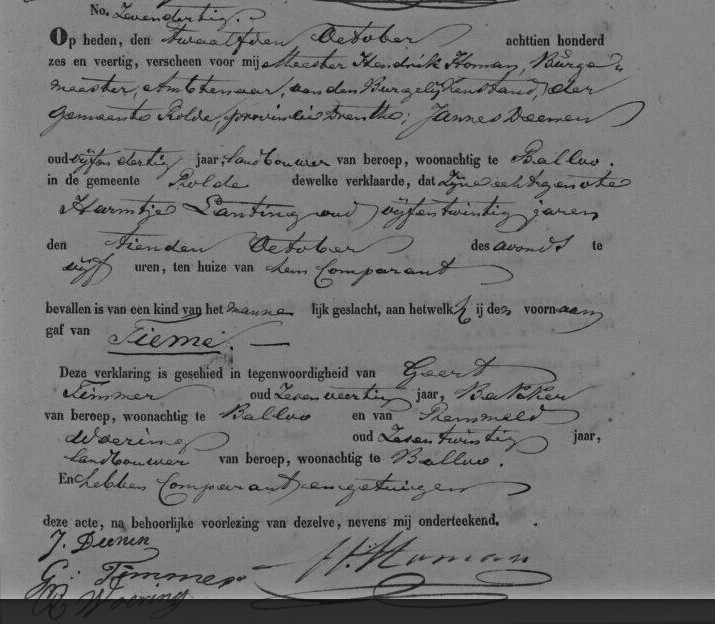 No. Zevendertig.
Op heden, den twaalfden October achttien honderd
zes en veertig, verscheen voor mij Meester Hendrik Homan, Burge-
meester, Ambtenaar, van den Burgelijkenstand, der
Gemeente Rolde, provincie Drenthe; Jannes Deenen
oud vijfendertig jaar, landbouwer van beroep, woonachtig te Balloo.
in de gemeente Rolde dewelke verklaarde, dat Zijne echtgenote
Harmtje Lanting oud vijfentwintig jaren
den tienden October des avonds te
vijf uren, ten huize van hem Comparant
bevallen is van een kind van het manne lijk geslacht, aan hetwelk hij den voornaam
gaf van Tieme. —
Deze verklaring is geschied in tegenwoordigheid van Geert
Timmer oud Zevenveertig jaar, Bakker
van beroep, woonachtig te Balloo en van
Woering oud Zesentwintig jaar,
landbouwer van beroep, woonachtig te Balloo.
En hebben Comparant en getuigen
deze acte, na behoorlijke voorlezing van dezelve, nevens mij onderteekend.
J. Deenen
H. Homan
G. Timmer
R Woering